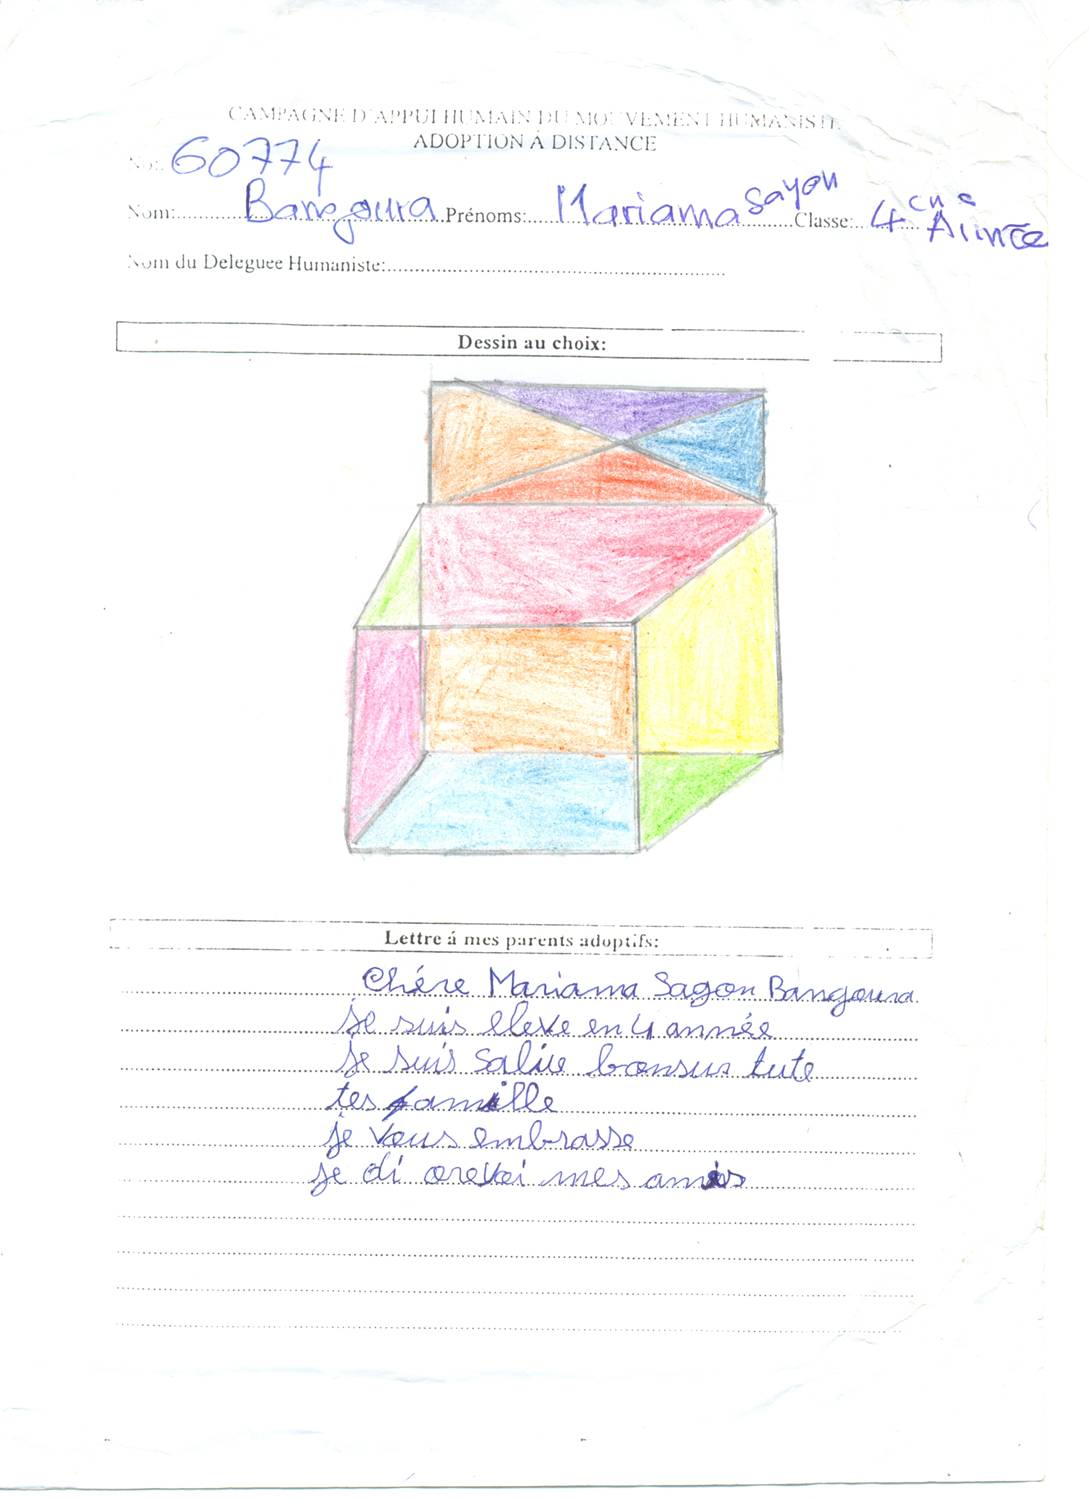 CAMPAGNE D'APPUI HUMAIN DU MOUVEMENT HUMANISTE
ADOPTION Á DISTANCE
No: 60774
Nom: Bangoura Prénoms: Mariama Sayon Classe: 4
Nom du Deleguee Humaniste:
Dessin au choix:
Lettre á mes parents adoptifs:
Chére Mariama Sayon Bangoura
je suis eleve en 4 année
je suis salue bonsus tute
tes famille
je vous embrasse
je di orevoi mes amis